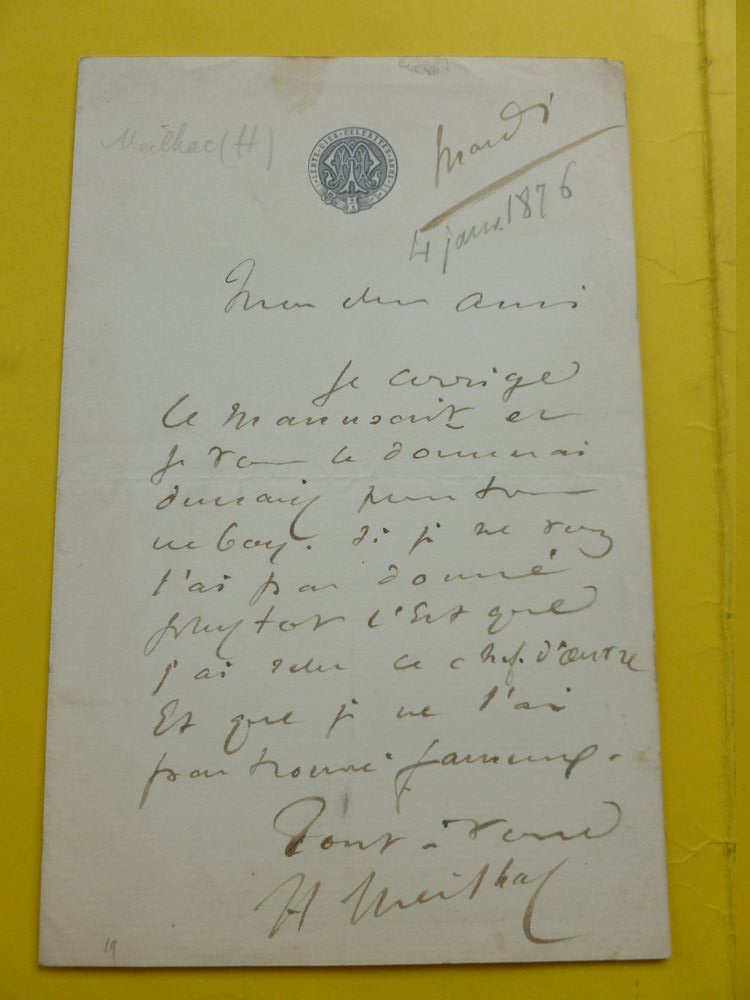 Meilhac (H)
Mardi
4 janv. 1876
Mon cher ami
Je corrige
le manuscrit et
je vous le donnerai
demain pour tom
ne Gay. Si je ne vous
l'ai pas donné
plus tot c'Est que
j'ai relu ce chef. d'œuvre
Et que je ne l'ai
pas trouvé fameux.
Tout à vous
H Meilhac